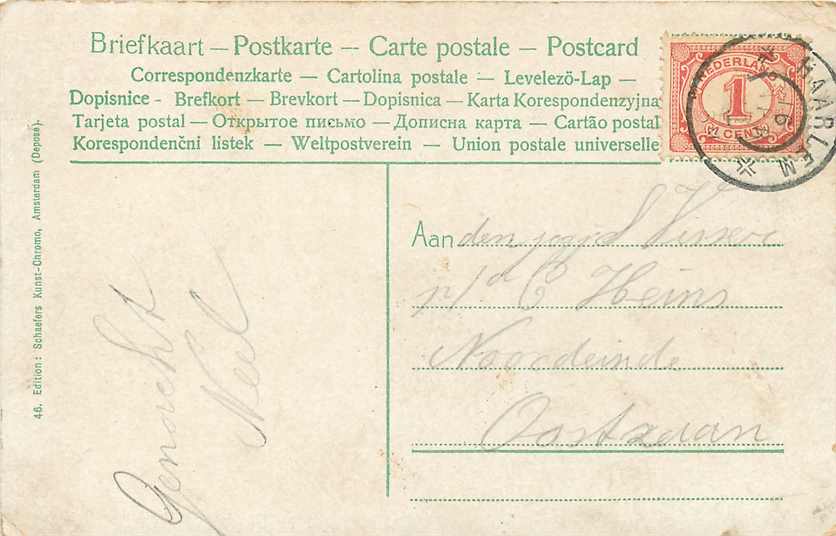 Briefkaart — Postkarte — Carte postale — Postcard
Correspondenzkarte — Cartolina postale — Levelezö-Lap —
Dopisnice - Brefkort — Brevkort — Dopisnica — Karta Korespondenzyjna
Tarjeta postal — Открытое письмо — Дописна карта — Cartão postal
Korespondenčni listek — Weltpostverein — Union postale universelle
NEDERLAND
1
CENT
HAARLEM
46. Edition: Schaefers Kunst-Chromo, Amsterdam (Deposé).
Aan den S Visser
p/a C Heins
Noordeinde
Oostzaan
Neel